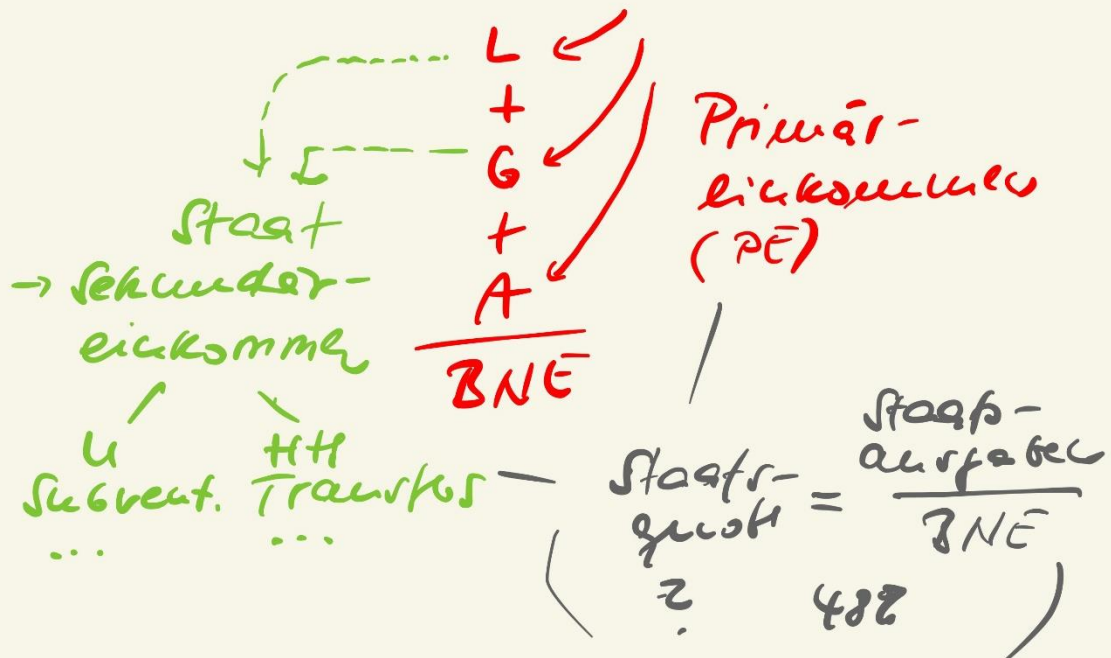 L
+
G
+
A
BNE
Primär-
einkommen
(PE)
Staat
→ Sekundär-
einkommen
U
Subvent.
...
HH
Transfers
...
Staats-
quote
?
=
Staats-
ausgaben
BNE
48%